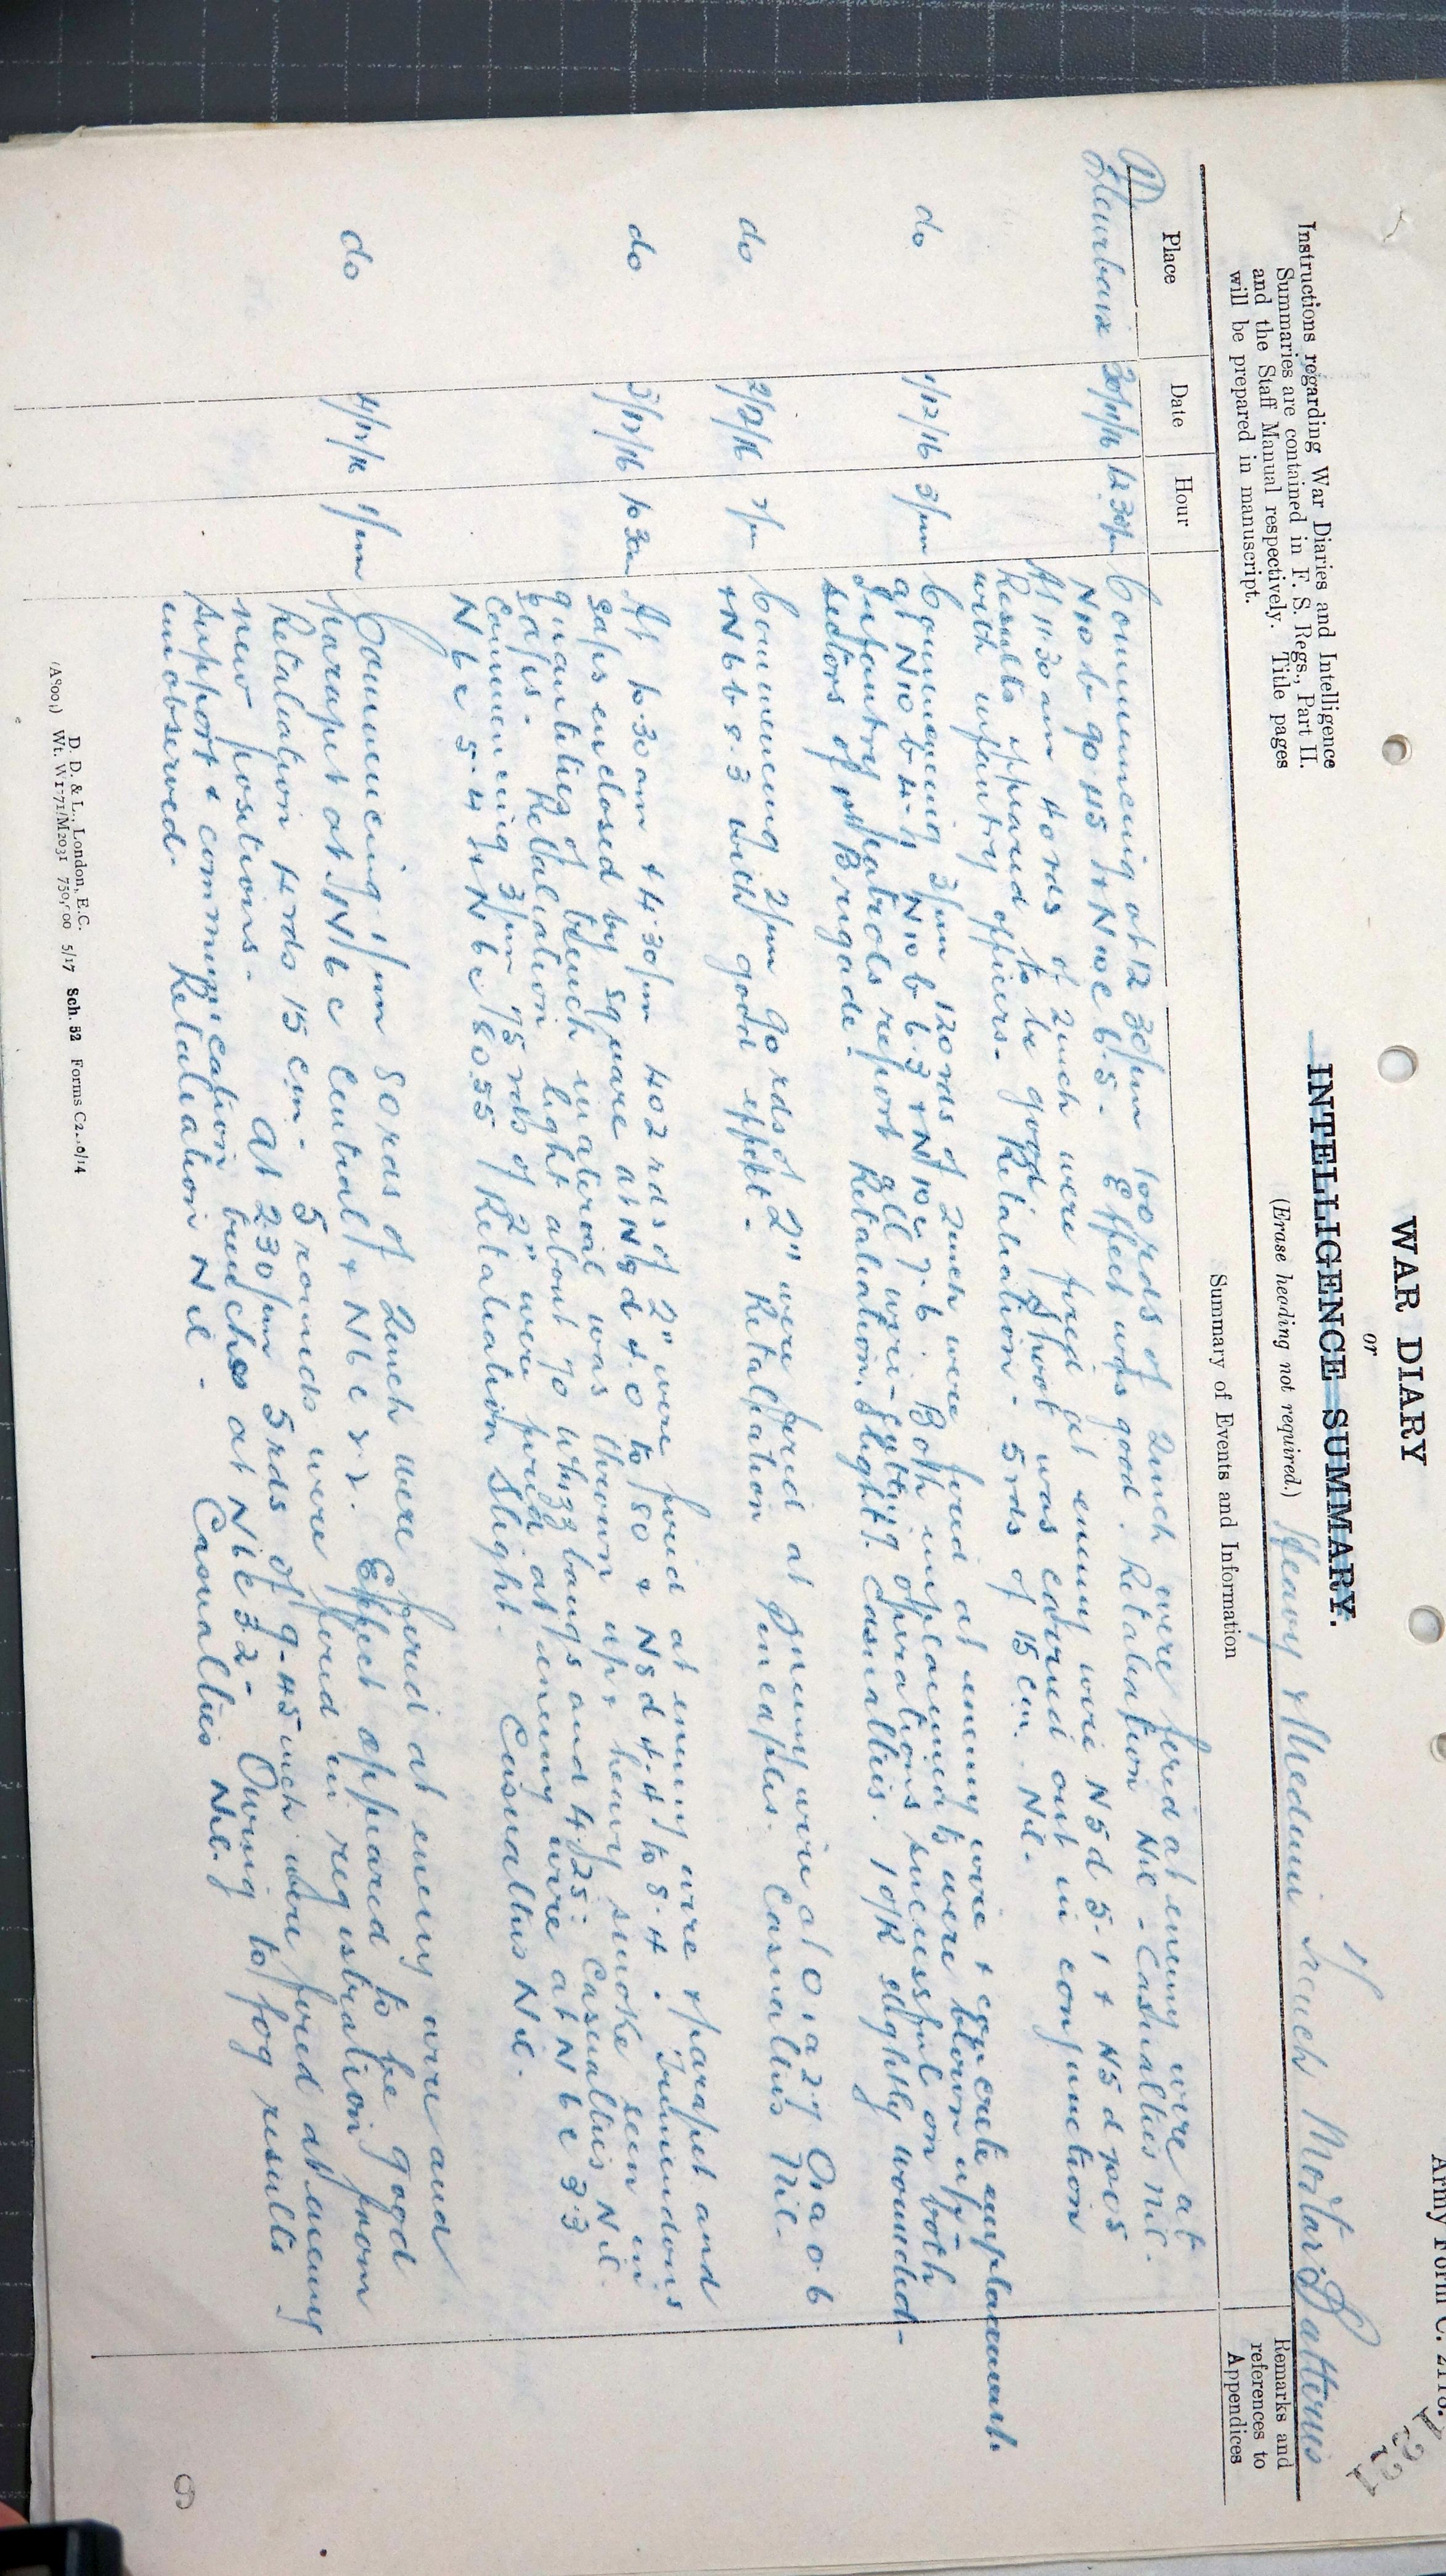 Army Form C. 2118.
WAR DIARY
or
INTELLIGENCE SUMMARY.
(Erase heading not required.)
Instructions regarding War Diaries and Intelligence
Summaries are contained in F. S. Regs., Part II.
and the Staff Manual respectively. Title pages
will be prepared in manuscript.
Heavy & Medium Trench Mortar Batteries
Place Date Hour Summary of Events and Information Remarks and references to Appendices
Fleurbaix 30/11/16 12.30pm Commencing at 12 30pm 100 rds of 2inch were fired at enemy wire at
N10 b 90 45 & N10 c 6.5. Effect was good. Retaliation Nil - Casualties nil.
At 11.30am 40 rds of 2inch were fired at enemy wire N5 d 5.1 & N5 d
Results appeared to be good. Shoot was carried out in conjunction
with infantry officers. Retaliation - 5 rds of 15 cm. Nil.
do 1/12/16 3pm Commencing 3pm 120 rds of 2inch were fired at enemy wire & concrete emplacements
at N10 b 4.4, N10 b 6.3 & N10 c 7.6. Both emplacements were blown up.
Infantry patrols report all wire-cutting operations successful on both
sectors of Brigade. Retaliation. Slight. Casualties. 1 O/R slightly wounded.
do 2/12/16 2pm Commencing 2pm 90 rds of 2" were fired at enemy wire at O1a 2.7 O1a 0.6
& N6 b 8.3 with good effect. Retaliation Pineapples. Casualties Nil.
do 3/12/16 10 30am At 10.30am & 4.30pm 402 rds of 2" were fired at enemy wire & parapet and
gaps enclosed by square at N9 d 4.0 to 80 & N8 d 4.4 to 8.4. Tremendous
quantities of trench material was thrown up & heavy smoke seen in
gaps. Retaliation light about 70 whizz bangs and 4/25. Casualties Nil.
Commencing 3pm 75 rds of 2" were fired at enemy wire at N6 c 3.3
N6c 5.4 & N6c 80.55 Retaliation Slight. Casualties Nil.
do 4/12/16 1pm Commencing 1pm 80 rds of 2inch were fired at enemy wire and
parapet at N6 c central & N6 c 2.2. Effect appeared to be good
Retaliation 4 rds 15 cm. 5 rounds were fired in registration from
new positions. At 2 30pm 5 rds of 9.45 inch were fired at enemy
support & communication trenches at N6c 3.2. Owing to fog results
unobserved. Retaliation Nil. Casualties Nil.
D. D. & L., London, E.C.
(A8001) Wt. W1771/M2031 750,000 5/17 Sch. 52 Forms C2118/14